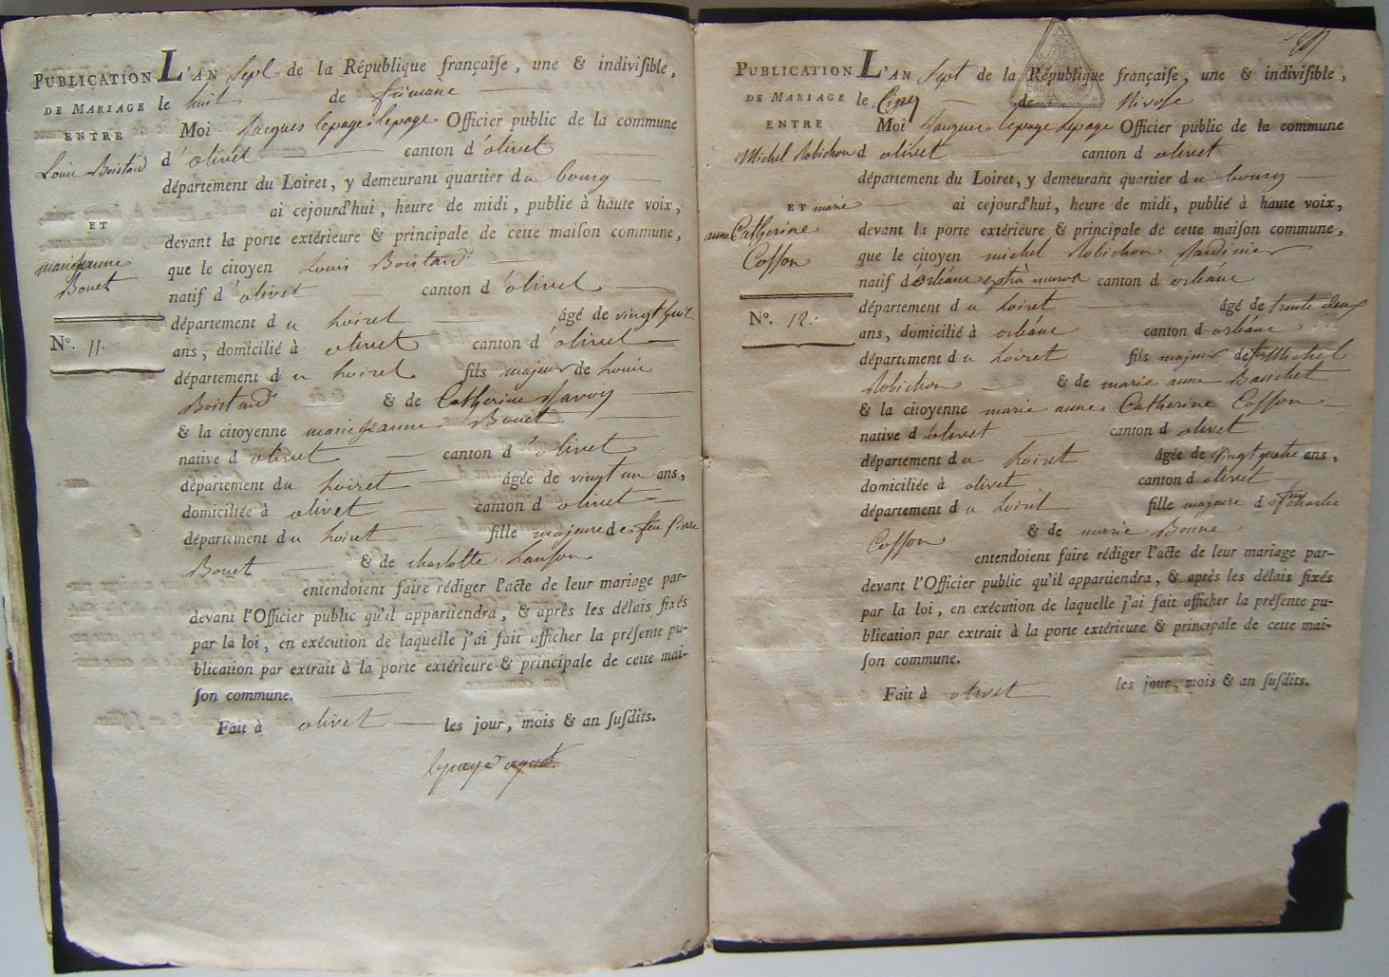 PUBLICATION
DE MARIAGE
ENTRE
Louis Boistard
ET
marie jeanne
Bouet
N°. 11.
L'AN Sept de la République françaiſe, une & indiviſible,
le huit de frimaire
Moi Jacques lepage lepage Officier public de la commune
d'olivet canton d'olivet
département du Loiret, y demeurant quartier du bourg
ai cejourd'hui, heure de midi, publié à haute voix,
devant la porte extérieure & principale de cette maiſon commune,
que le citoyen Louis Boistard
natif d'olivet canton d'olivet
département du Loiret âgé de vingt
ans, domicilié à olivet canton d'olivet
département du Loiret fils majeur de Louis
Boistard & de Catherine
& la citoyenne marie jeanne Bouet
native d olivet canton d'olivet
département du Loiret âgée de vingt un ans,
domiciliée à olivet canton d olivet
département du Loiret fille majeure de feu pierre
Bouet & de charlotte
entendoient faire rédiger l'acte de leur mariage par-
devant l'Officier public qu'il appartiendra, & après les délais fixés
par la loi, en exécution de laquelle j'ai fait afficher la préſente pu-
blication par extrait à la porte extérieure & principale de cette mai-
ſon commune.
Fait à olivet les jour, mois & an ſuſdits.
PUBLICATION
DE MARIAGE
ENTRE
Michel Robichon
ET marie
anne Catherine
Cosson
N°. 12.
L'AN Sept de la République françaiſe, une & indiviſible,
le Cinq de Nivose
Moi Jacques lepage Lepage Officier public de la commune
d olivet canton d olivet
département du Loiret, y demeurant quartier du bourg
ai cejourd'hui, heure de midi, publié à haute voix,
devant la porte extérieure & principale de cette maiſon commune,
que le citoyen michel Robichon Jardinier
natif d'orléans extrà muros canton d orléans
département du Loiret âgé de trente deux
ans, domicilié à orléans canton d orléans
département du Loiret fils majeur de Michel
Robichon & de marie anne Bauchet
& la citoyenne marie anne Catherine Cosson
native d'olivet canton d olivet
département du Loiret âgée de vingt quatre ans,
domiciliée à olivet canton d olivet
département du Loiret fille majeure d charles
Cosson & de marie Bonne
entendoient faire rédiger l'acte de leur mariage par-
devant l'Officier public qu'il appartiendra, & après les délais fixés
par la loi, en exécution de laquelle j'ai fait afficher la préſente pu-
blication par extrait à la porte extérieure & principale de cette mai-
ſon commune.
Fait à olivet les jour, mois & an ſuſdits.